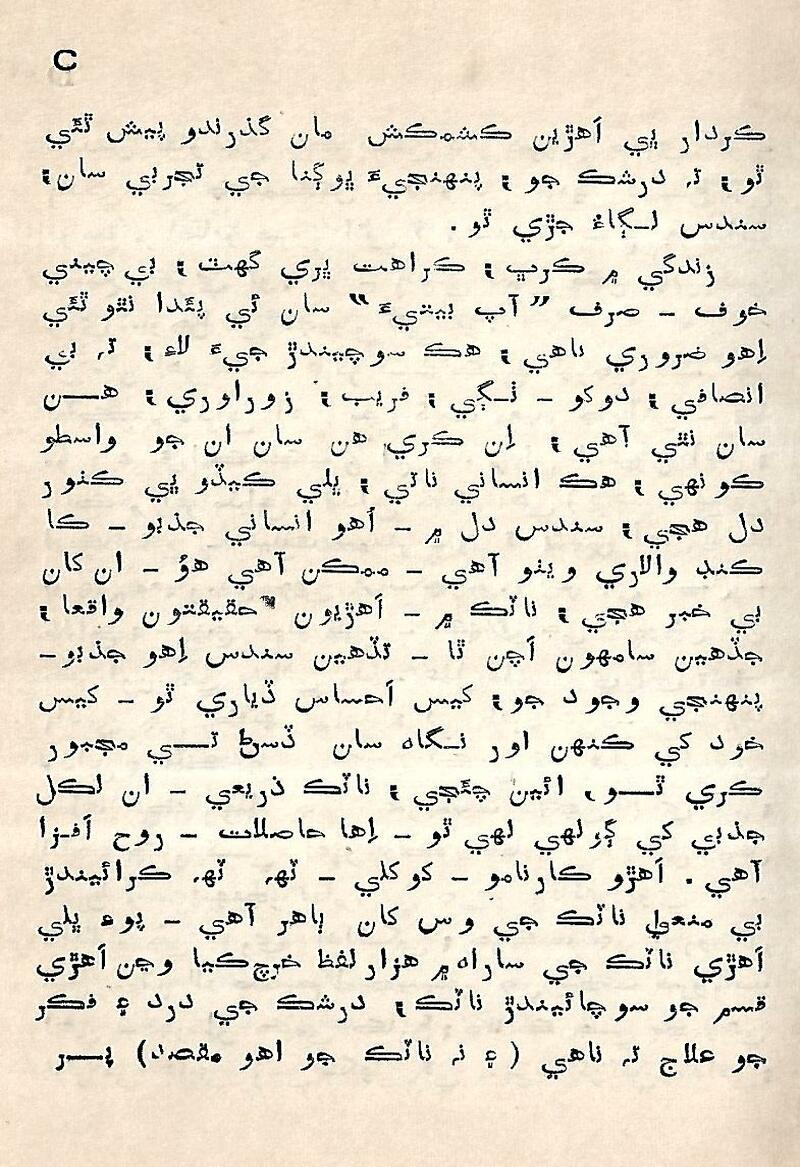 C
ڪردار ڀي اَهڙين ڪشمڪش مان گذرندو پيش ٿئي
ٿو ؛ تہ درشڪ جو ؛ پنهنجيءَ ڀوڳنا جي تجربي سان؛
سندس لڳاءُ جڙي ٿو .
زندگي ۾ ڪرڀ ؛ ڪراهت ڀري گهٽ ؛ بي چيني
خوف – صرف ”آپ بيتيءَ“ سان ئي پئدا نٿو ٿئي
اِهو ضروري ناهي ؛ هڪ سوچيندڙ جيءَ لاءِ ؛ تہ بي
انصافي ؛ دوکو – ٺڳي ؛ فريب ؛ زوراوري ؛ هن
سان نٿي آهي ؛ اِن ڪري هن سان ان جو واسطو
ڪونهي ؛ هڪ انساني ناتي ؛ ڀلي ڪيڏو ڀي ڪٺور
دل هجي ؛ سندس دل ۾ – اُهو انساني جذبو – ڪا
ڪنڊ والاري ويٺو آهي – ممڪن آهي هوُ – ان کان
بي خبر هجي ؛ ناٽڪ ۾ – اَهڙيون حقيقتون واقعا ؛
جڏهين سامهون اَچن ٿا – تڏهين سندس اِهو جذبو–
پنهنجي وجود جو ؛ کيس اَحساس ڏياري ٿو – کيس
خود کي ڪنهن اور نگاه سان ڏسڻ تي مجبور
ڪري ٿو، ائين چئجي ؛ ناٽڪ ذريعي – ان لڪل
جذبي کي ڳولهي لهي ٿو – اِها حاصلات – روح اَفزا
آهي . اَهڙو ڪارنامو – کوکلي – ٽهہ ٽهہ ڪرائيندڙ
بي منعيٰ ناٽڪ جي وس کان ٻاهر آهي – پوءِ ڀلي
اَهڙي ناٽڪ جي ساراه ۾ هزار لفظ خرچ ڪيا وڃن اَهڙي
قسم جو سوچائيندڙ ناٽڪ ؛ درشڪ جي درد ۽ فڪر
جو علاج تہ ناهي (۽ نہ ناٽڪ جو اهو مقصد) پر